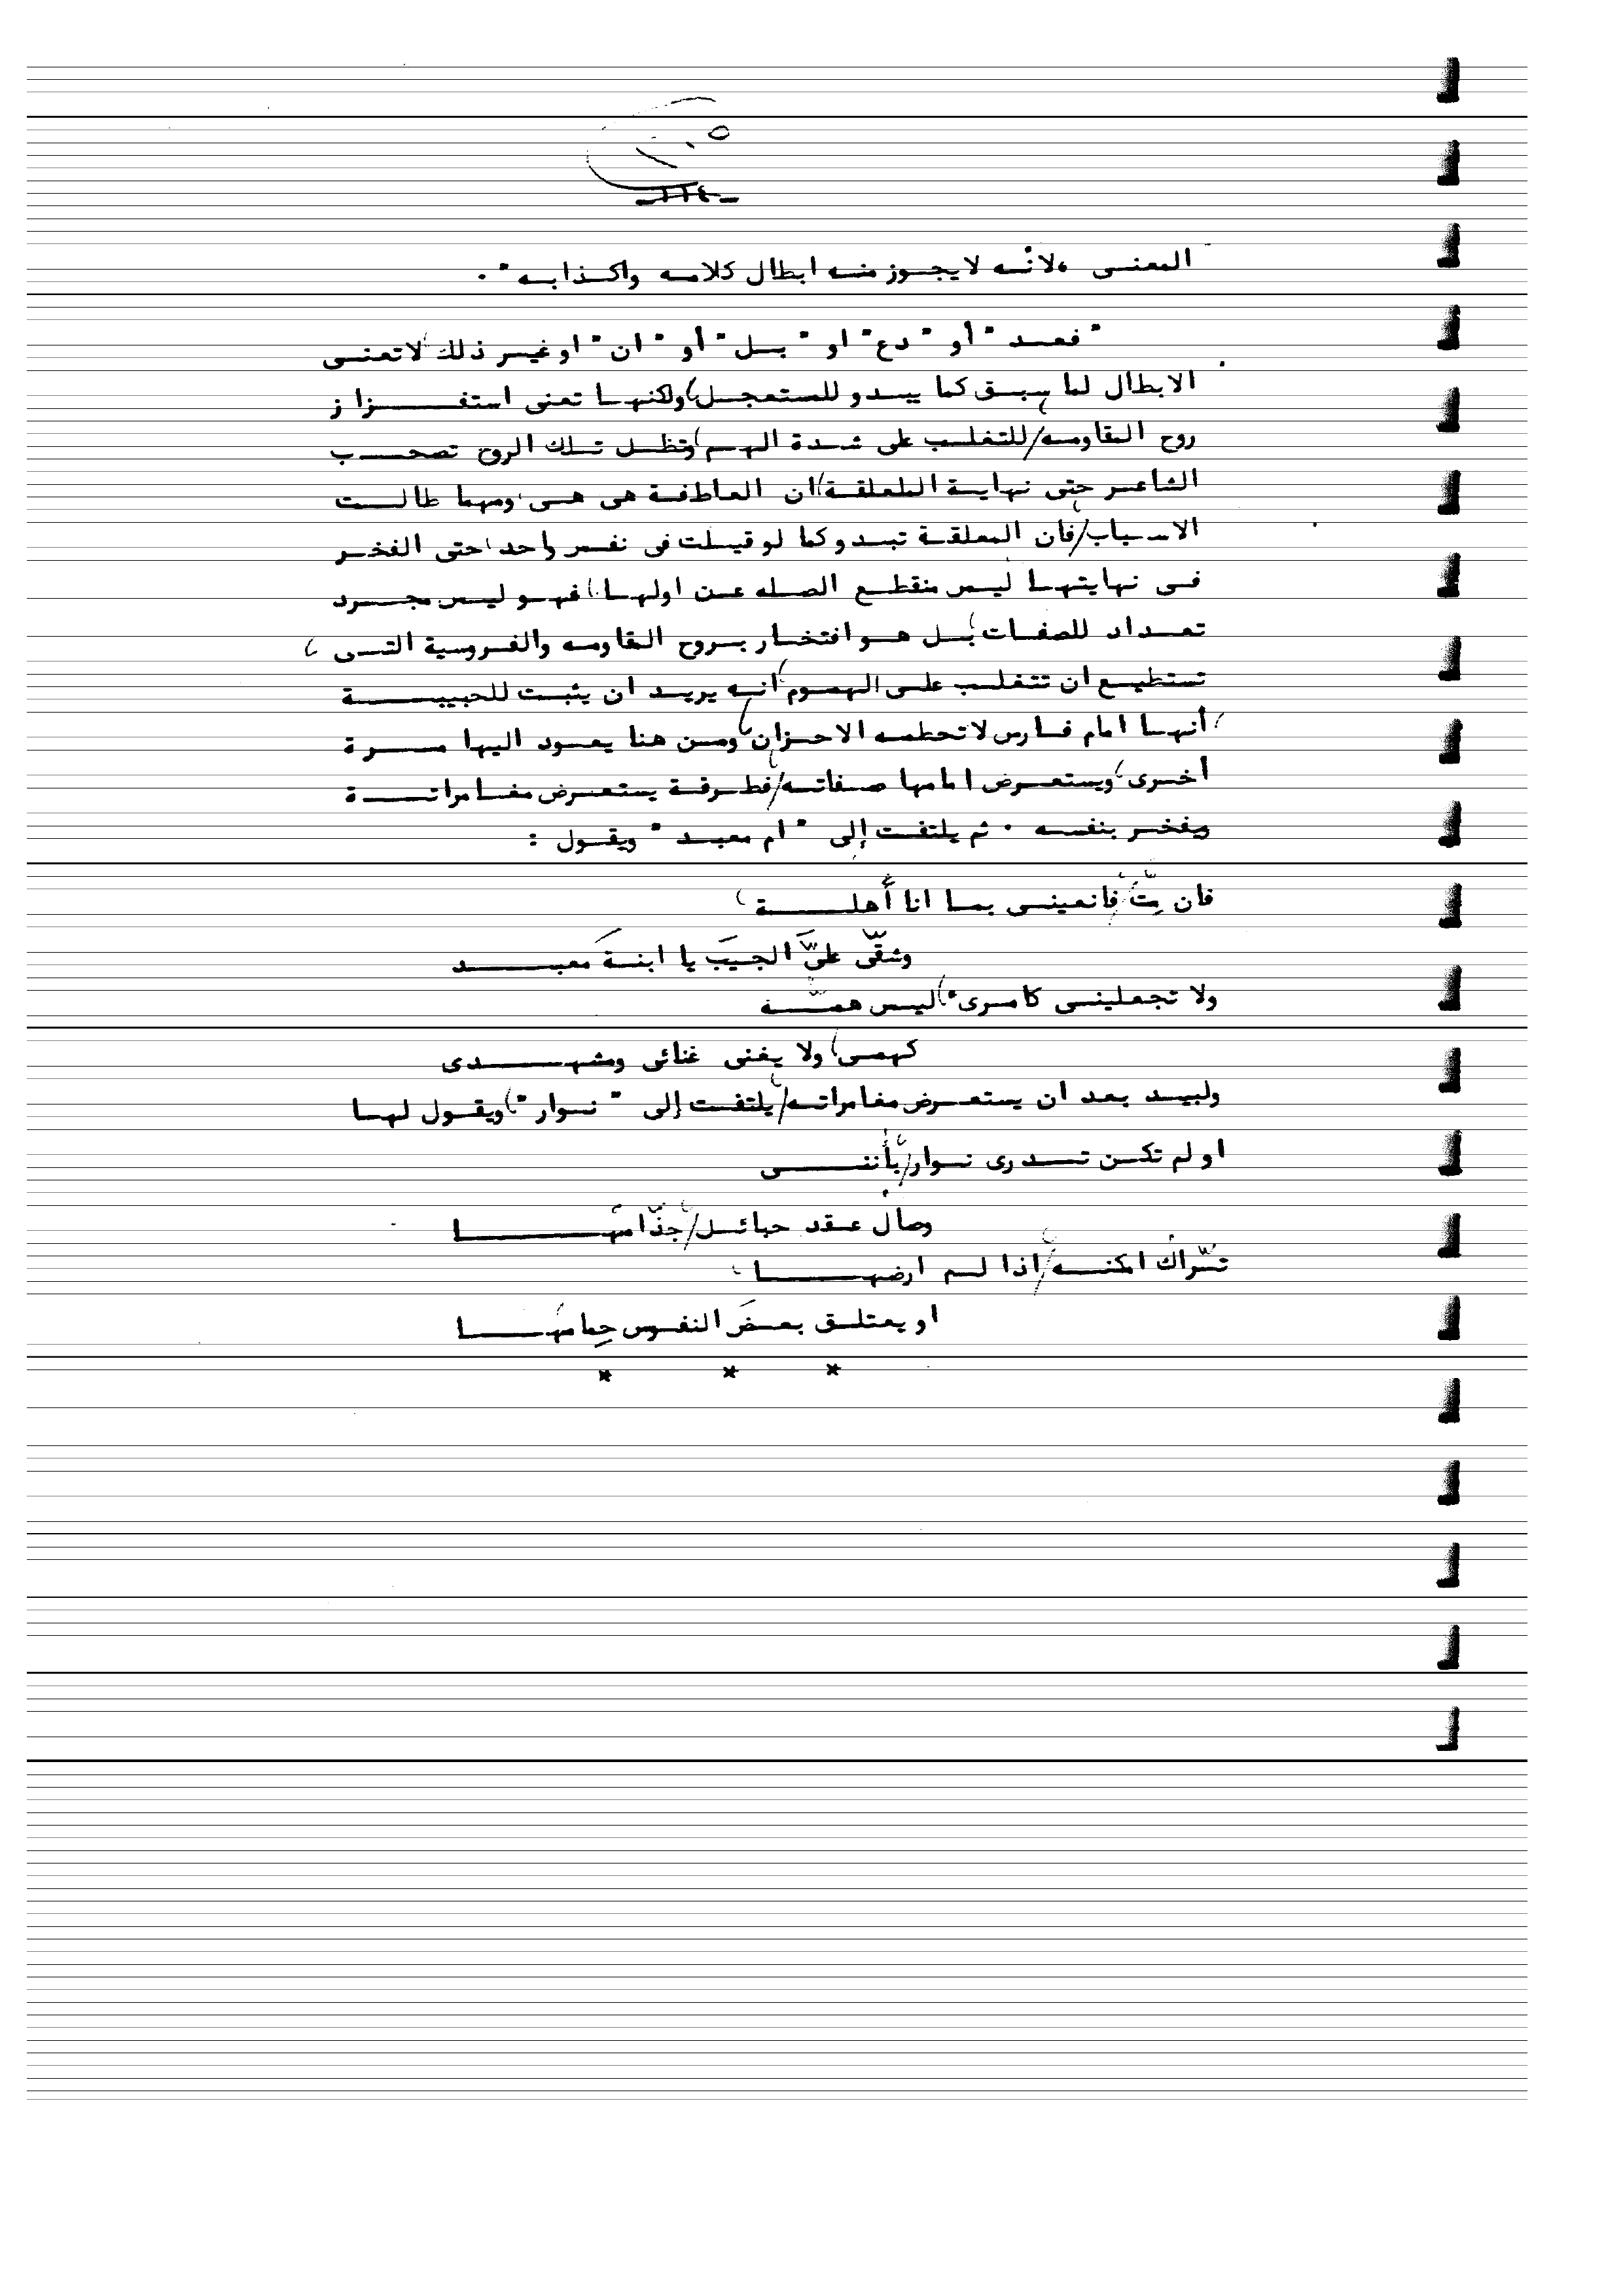 ١٠٥
-١١٤-
المعنى ، لانه لا يجوز منه ابطال كلامه واكذابه " .
" فعد " أو " دع " او " بل " أو " ان " او غير ذلك ، لا تعنى
الابطال لما سبق كما يبدو للمستعجل ، ولكنها تعنى استفزاز
روح المقاومه ، للتغلب على شدة الهم ، وتظل تلك الروح تصحب
الشاعر حتى نهاية المعلقة ، ان العاطفة هى هى ، ومهما طالت
الاسباب ، فان المعلقة تبدو كما لو قيلت فى نفس واحد ، حتى الفخر
فى نهايتها ليس منقطع الصله عن اولها ، فهو ليس مجرد
تعداد للصفات ، بل هو افتخار بروح المقاومه والفروسية التى
تستطيع ان تتغلب على الهموم ، انه يريد ان يثبت للحبيبة
أنها امام فارس لا تحطمه الاحزان ، ومن هنا يعود اليها مرة
أخرى ، ويستعرض امامها صفاته ، فطرفة يستعرض مغامراتة
ويفخر بنفسه . ثم يلتفت إلى " ام معبد " ويقول :
فان مِتُّ فانعينى بما انا أهلة
وشقّى علىَّ الجيبَ يا ابنةَ معبد
ولا تجعلينى كامرىء ، ليس همّه
كهمى ، ولا يغنى غنائى ومشهدى
ولبيد بعد ان يستعرض مغامراته ، يلتفت إلى " نوار " ، ويقول لها
او لم تكن تدرى نوار ، بأننى
وصال عقد حبائل ، جذّامُها
ترّاك امكنه ، اذا لم ارضها
او يعتلق بعضَ النفوس حِمامُها
* * *